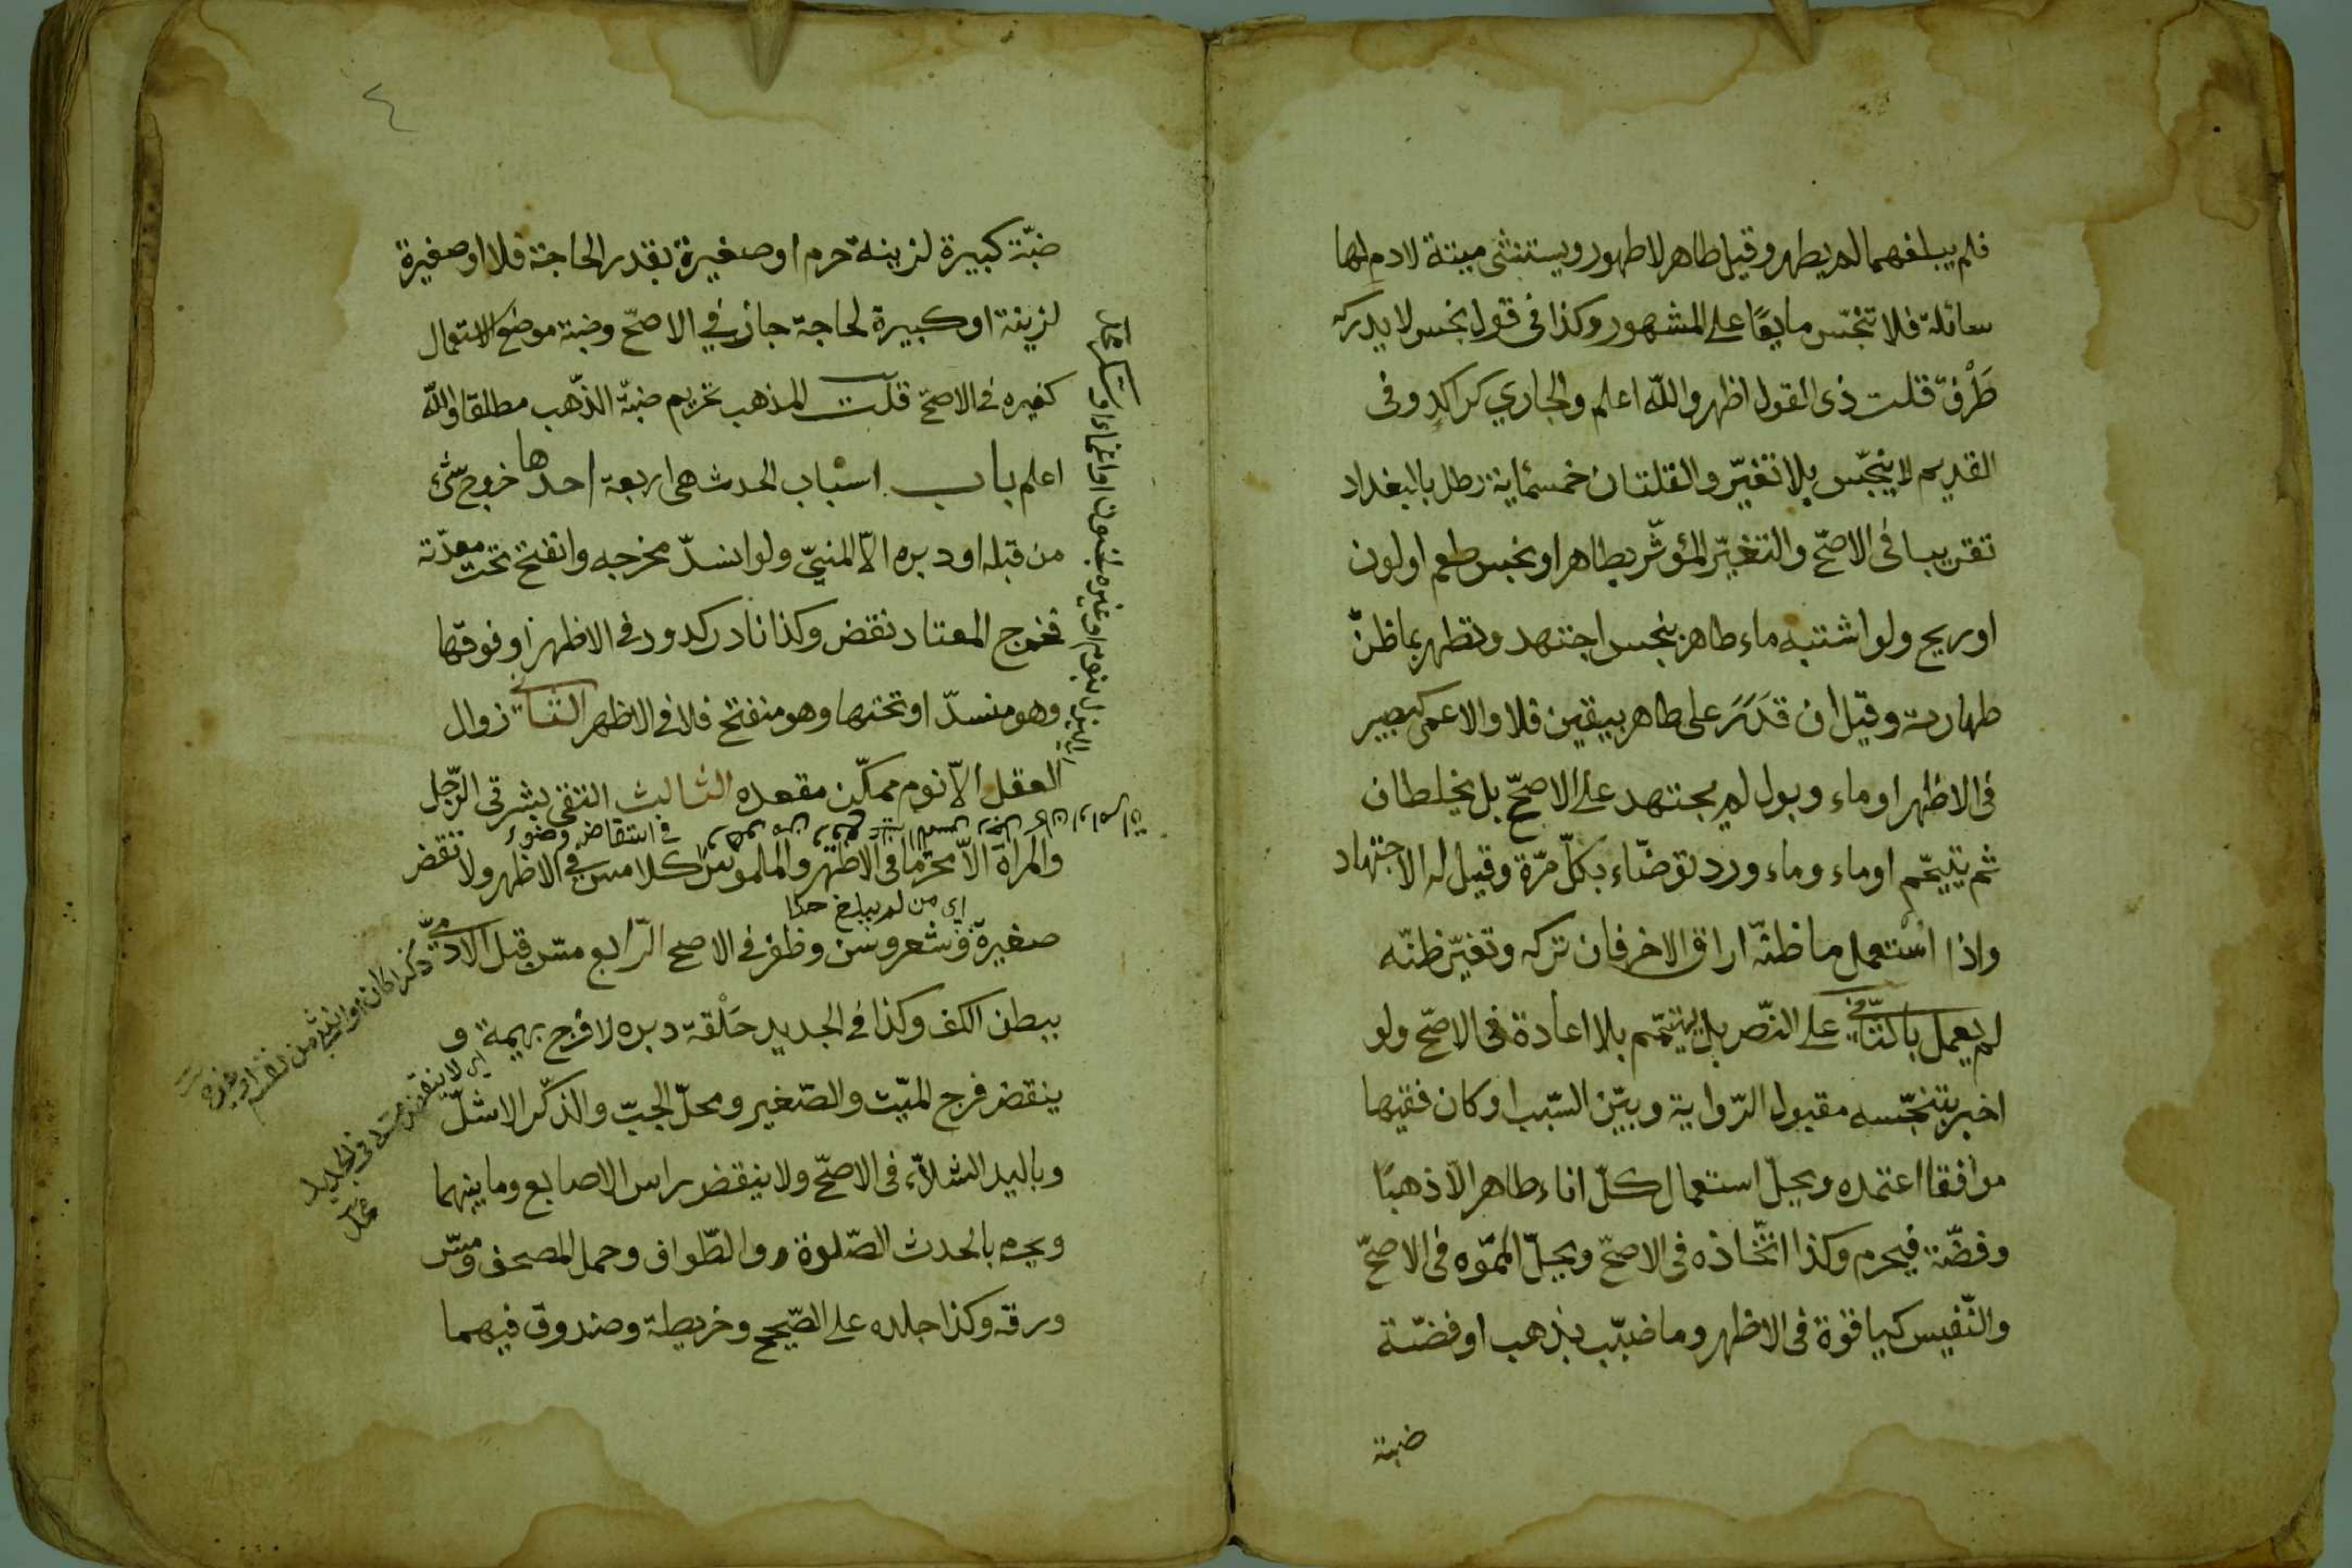 فلم يبلغهما لم يطهر وقيل طاهر لا طهور ويستثنى ميتة لا دم لها
سائلة فلا تنجّس مايعًا على المشهور وكذا فى قول نجس لا يدركه
طَرْفٌ قلت ذى القول اظهر والله اعلم والجاري كراكد وفى
القديم لا ينجّس بلا تغيّر والقلتان خمسماية رطل بالبغداد
تقريبا فى الاصحّ والتغيّر المؤثّر بطاهر او نجس طعم او لون
او ريح ولو اشتبه ماء طاهر بنجس اجتهد وتطهر بما ظنّ
طهارته وقيل ان قدَرَ على طاهر بيقين فلا والاعمى كبصير
فى الاظهر او ماء وبول لم يجتهد على الاصحّ بل يخلطان
ثم يتيمّم او ماء وماء ورد توضّاء بكلّ مرّة وقيل له الاجتهاد
واذا استعمل ما ظنّه اراق الاخر فان تركه وتغيّر ظنّه
لم يعمل بالثّاني على النصّ بل يتيمّم بلا اعادة فى الاصحّ ولو
اخبر بتنجّسه مقبول الرّواية وبيّن السّبب او كان فقيها
موافقا اعتمده ويحلّ استعمال كلّ اناء طاهر الّا ذهبًا
وفضّة فيحرم وكذا اتّخاذه فى الاصحّ ويحلّ المموّه فى الاصحّ
والنّفيس كياقوة فى الاظهر وما ضبّب بذهب او فضّة
ضبة
٤
ضبّة كبيرة لزينة حرم او صغيرة بقدر الحاجة فلا او صغيرة
لزينة او كبيرة لحاجة جاز في الاصحّ وضبة موضع الاستعمال
كغيره فى الاصحّ قلت المذهب تحريم ضبّة الذّهب مطلقا والله
اعلم باب اسباب الحدث هى اربعة احدها خروج شئ
من قبله او دبره الّا المنيّ ولو انسدّ مخرجه وانفتح تحت معدته
فخرج المعتاد نقض وكذا نادر كدود فى الاظهر او فوقها
وهو منسدّ او تحتها وهو منفتح فلا فى الاظهر الثانى زوال
العقل الّا نوم ممكّن مقعده الثالث التقى بشرتى الرّجل
فى انتقاض وضوء
والمرأة الّا محرما فى الاظهر والملموس كلامس في الاظهر ولا تنقض
اى من لم يبلغ حدا
صغيرة وشعر وسن وظفر فى الاصح الرّابع مسّ قبل الادمىّ
ببطن الكف وكذا فى الجديد حَلْقة دبره لا فرج بهيمة و
ينقض فرج الميّت والصّغير ومحلّ الجبّ والذكر الاشلّ
وباليد الشلاّء فى الاصحّ ولا ينقض راس الاصابع وما بينهما
ويحرم بالحدث الصّلوة والطّواف وحمل المصحف ومسّ
ورقه وكذا جلده على الصّحيح وخريطة وصندوق فيهما
بجنون او اغماء او سكر
ذكرا كان او انثى من نفسه او غيره
اى لا ينقض مسه فى الجديد